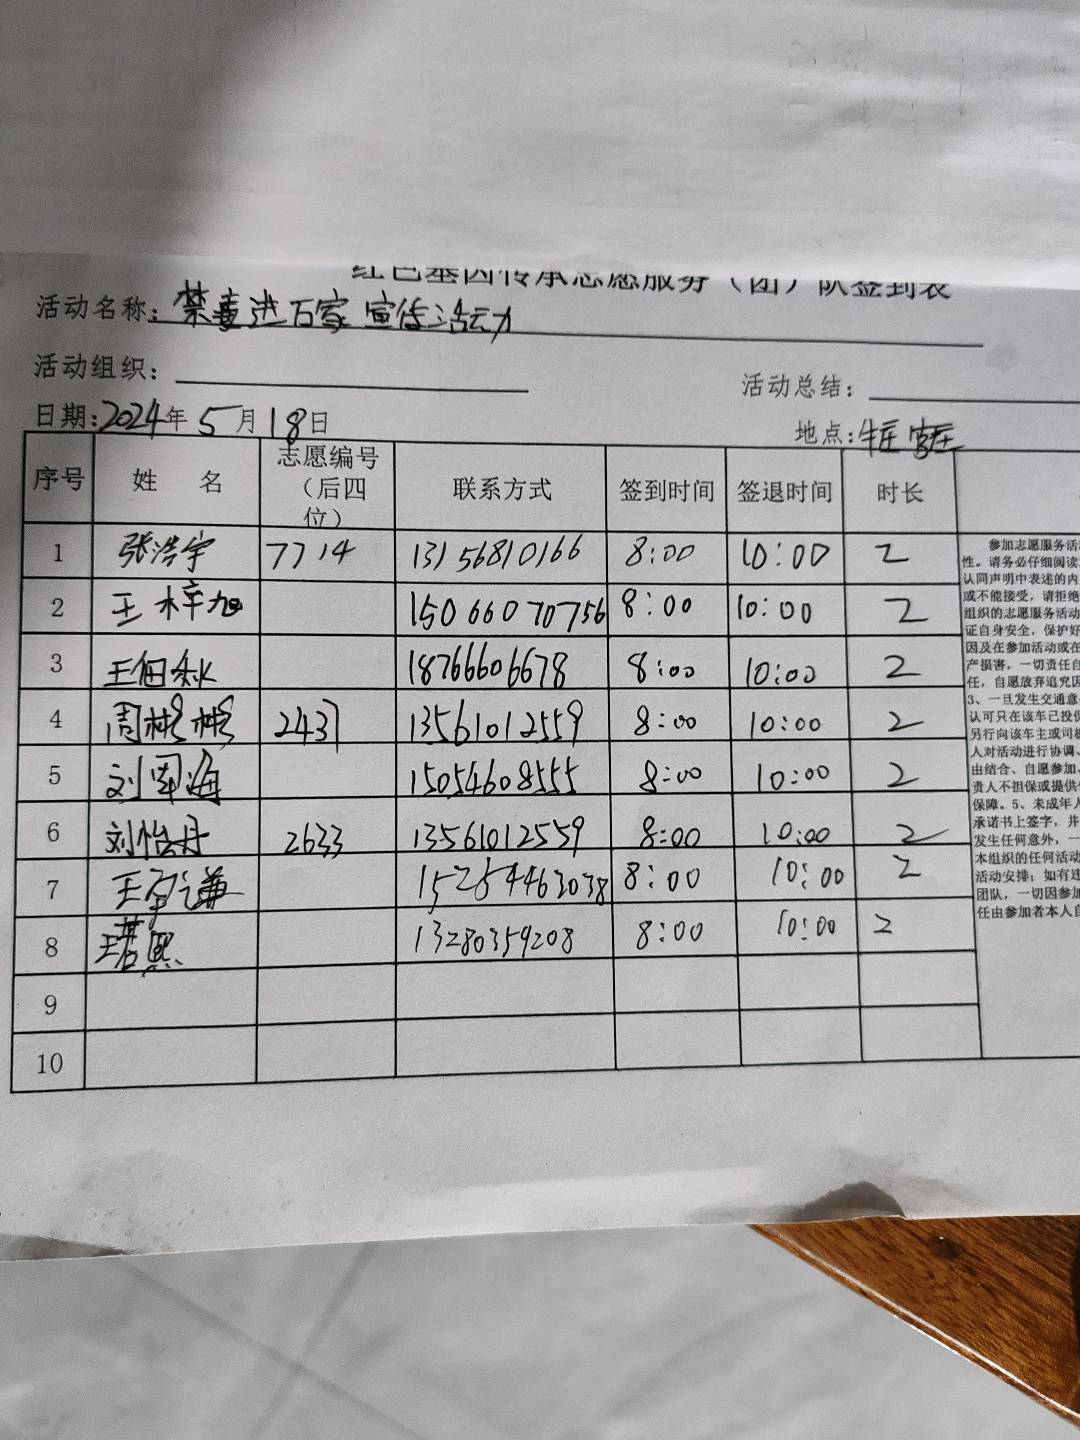 红色基因传承志愿服务（团）队签到表
活动名称：禁毒进万家宣传活动
活动组织：
活动总结：
日期：2024年5月18日
地点：
序号 姓 名 志愿编号（后四位） 联系方式 签到时间 签退时间 时长
1 张浩宇 7714 13156810166 8:00 10:00 2
2 王梓旭 15066070756 8:00 10:00 2
3 王佃秋 18766606678 8:00 10:00 2
4 周彬彬 2437 13561012559 8:00 10:00 2
5 刘军海 15054608555 8:00 10:00 2
6 刘怡丹 2633 13561012559 8:00 10:00 2
7 15254463038 8:00 10:00 2
8 王若熙 13280359208 8:00 10:00 2
9
10
参加志愿服务活
性。请务必仔细阅读
认同声明中表述的内
或不能接受，请拒绝
组织的志愿服务活动
证自身安全，保护好
因及在参加活动或在
产损害，一切责任自
任，自愿放弃追究因
3、一旦发生交通意
认可只在该车已投保
另行向该车主或司机
人对活动进行协调、
由结合、自愿参加、
责人不担保或提供
保障。5、未成年人
承诺书上签字，并
发生任何意外，一
本组织的任何活动
活动安排；如有违
团队，一切因参加
任由参加者本人自